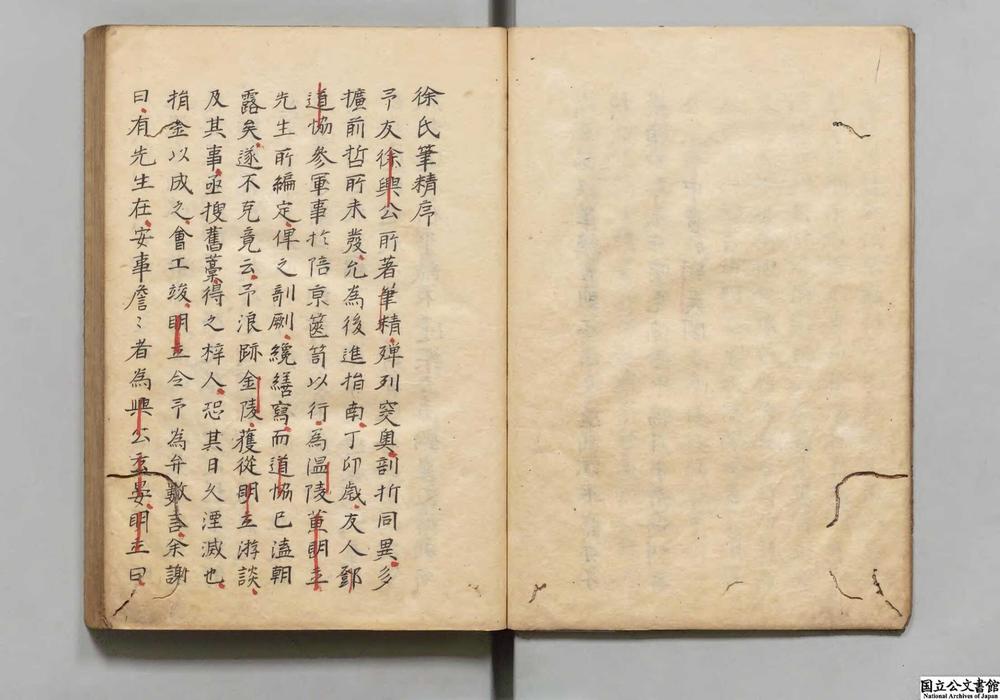 徐氏筆精序
予友徐興公所著筆精殫列突奧剖折同異多
擴前哲所未發允為後進指南丁卯歲友人鄧
道協參軍事於陪京篋笥以行為温陵黄明立
先生所編定俾之剞劂纔繕寫而道協已溘朝
露矣遂不克竟云予浪跡金陵獲從明立游談
及其事亟搜舊藁得之梓人恐其日久湮滅也
捐金以成之會工竣明立令予為弁數言余謝
曰有先生在安事詹〻者為興公玄晏明立曰
国立公文書館
National Archives of Japan